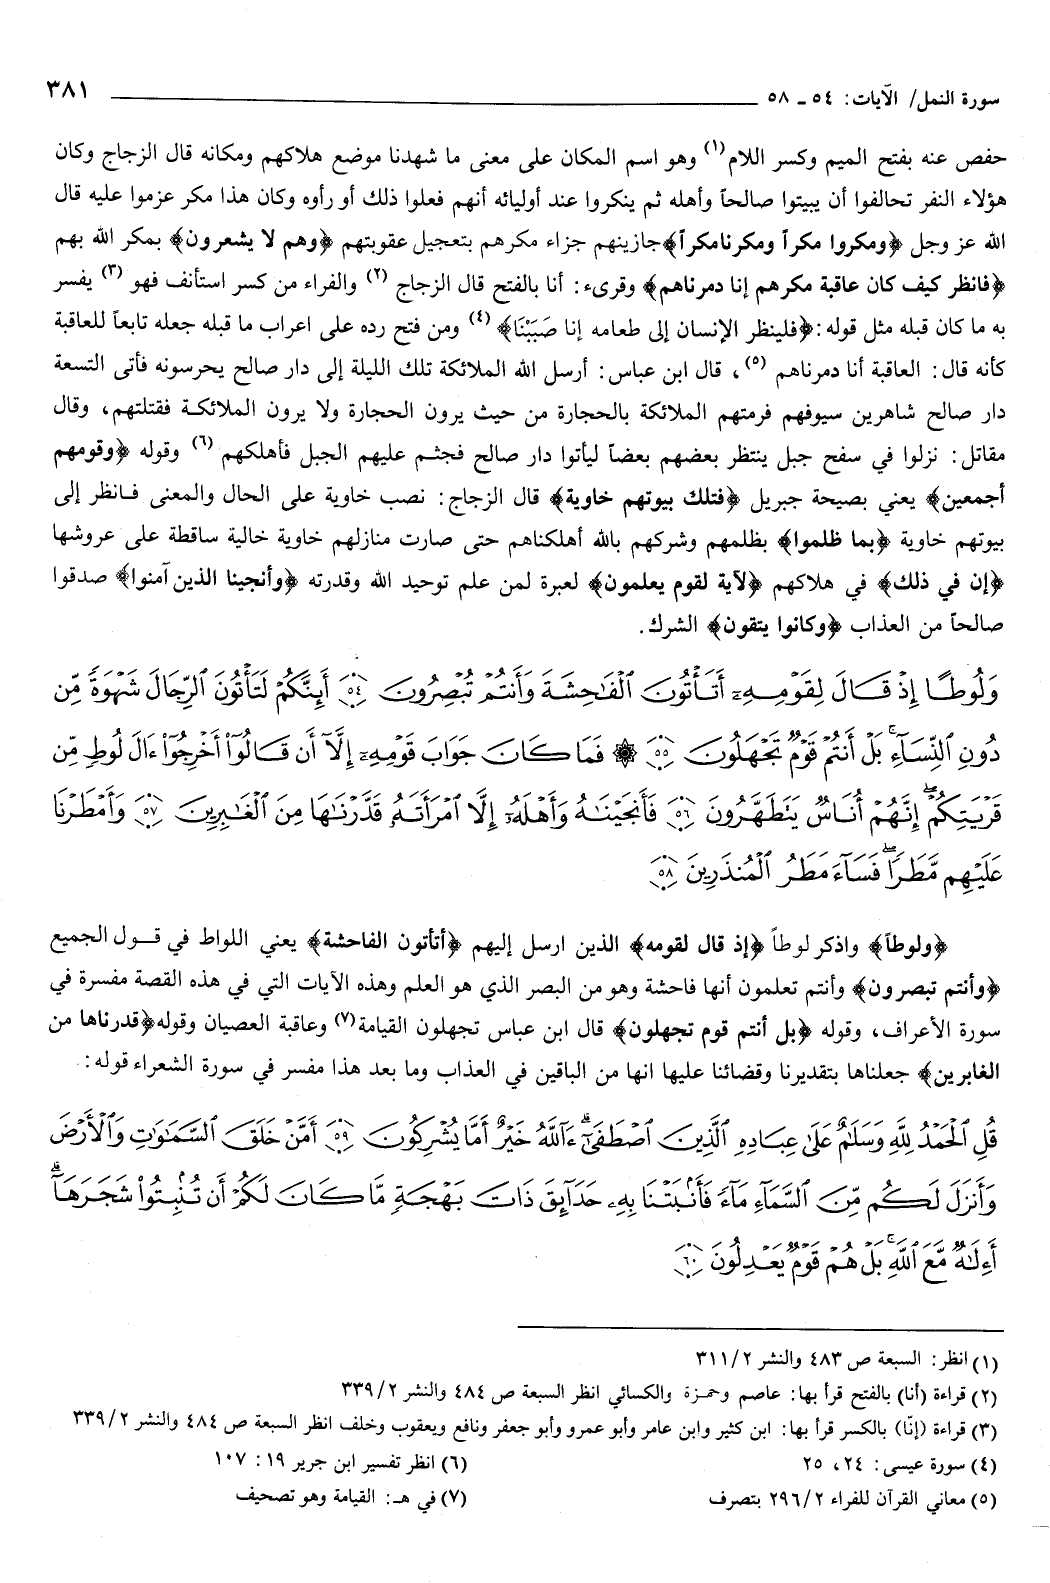 سورة النمل/ الآيات: ٥٤ ـ ٥٨ ٣٨١
حفص عنه بفتح الميم وكسر اللام(١) وهو اسم المكان على معنى ما شهدنا موضع هلاكهم ومكانه قال الزجاج وكان
هؤلاء النفر تحالفوا أن يبيتوا صالحاً وأهله ثم ينكروا عند أوليائه أنهم فعلوا ذلك أو رأوه وكان هذا مكر عزموا عليه قال
الله عز وجل ﴿ومكروا مكراً ومكرنا مكراً﴾ جازينهم جزاء مكرهم بتعجيل عقوبتهم ﴿وهم لا يشعرون﴾ بمكر الله بهم
﴿فانظر كيف كان عاقبة مكرهم إنا دمرناهم﴾ وقرىء: أنا بالفتح قال الزجاج (٢) والفراء من كسر استأنف فهو (٣) يفسر
به ما كان قبله مثل قوله: ﴿فلينظر الإنسان إلى طعامه إنا صَبَبْنَا﴾ (٤) ومن فتح رده على اعراب ما قبله جعله تابعاً للعاقبة
كأنه قال: العاقبة أنا دمرناهم (٥)، قال ابن عباس: أرسل الله الملائكة تلك الليلة إلى دار صالح يحرسونه فأتى التسعة
دار صالح شاهرين سيوفهم فرمتهم الملائكة بالحجارة من حيث يرون الحجارة ولا يرون الملائكة فقتلتهم، وقال
مقاتل: نزلوا في سفح جبل ينتظر بعضهم بعضاً ليأتوا دار صالح فجثم عليهم الجبل فأهلكهم (٦) وقوله ﴿وقومهم
أجمعين﴾ يعني بصيحة جبريل ﴿فتلك بيوتهم خاوية﴾ قال الزجاج: نصب خاوية على الحال والمعنى فانظر إلى
بيوتهم خاوية ﴿بما ظلموا﴾ بظلمهم وشركهم بالله أهلكناهم حتى صارت منازلهم خاوية خالية ساقطة على عروشها
﴿إن في ذلك﴾ في هلاكهم ﴿لآية لقوم يعلمون﴾ لعبرة لمن علم توحيد الله وقدرته ﴿وأنجينا الذين آمنوا﴾ صدقوا
صالحاً من العذاب ﴿وكانوا يتقون﴾ الشرك.
وَلُوطًا إِذْ قَالَ لِقَوْمِهِۦٓ أَتَأْتُونَ ٱلْفَـٰحِشَةَ وَأَنتُمْ تُبْصِرُونَ ٥٤ أَئِنَّكُمْ لَتَأْتُونَ ٱلرِّجَالَ شَهْوَةً مِّن
دُونِ ٱلنِّسَآءِ ۚ بَلْ أَنتُمْ قَوْمٌ تَجْهَلُونَ ٥٥ ۞ فَمَا كَانَ جَوَابَ قَوْمِهِۦٓ إِلَّآ أَن قَالُوٓا۟ أَخْرِجُوٓا۟ ءَالَ لُوطٍ مِّن
قَرْيَتِكُمْ ۖ إِنَّهُمْ أُنَاسٌ يَتَطَهَّرُونَ ٥٦ فَأَنجَيْنَـٰهُ وَأَهْلَهُۥٓ إِلَّا ٱمْرَأَتَهُۥ قَدَّرْنَـٰهَا مِنَ ٱلْغَـٰبِرِينَ ٥٧ وَأَمْطَرْنَا
عَلَيْهِم مَّطَرًا ۖ فَسَآءَ مَطَرُ ٱلْمُنذَرِينَ ٥٨
﴿ولوطاً﴾ واذكر لوطاً ﴿إذ قال لقومه﴾ الذين ارسل إليهم ﴿أتأتون الفاحشة﴾ يعني اللواط في قول الجميع
﴿وأنتم تبصرون﴾ وأنتم تعلمون أنها فاحشة وهو من البصر الذي هو العلم وهذه الآيات التي في هذه القصة مفسرة في
سورة الأعراف، وقوله ﴿بل أنتم قوم تجهلون﴾ قال ابن عباس تجهلون القيامة(٧) وعاقبة العصيان وقوله ﴿قدرناها من
الغابرين﴾ جعلناها بتقديرنا وقضائنا عليها انها من الباقين في العذاب وما بعد هذا مفسر في سورة الشعراء قوله:
قُلِ ٱلْحَمْدُ لِلَّهِ وَسَلَـٰمٌ عَلَىٰ عِبَادِهِ ٱلَّذِينَ ٱصْطَفَىٰٓ ۗ ءَآللَّهُ خَيْرٌ أَمَّا يُشْرِكُونَ ٥٩ أَمَّنْ خَلَقَ ٱلسَّمَـٰوَٰتِ وَٱلْأَرْضَ
وَأَنزَلَ لَكُم مِّنَ ٱلسَّمَآءِ مَآءً فَأَنۢبَتْنَا بِهِۦ حَدَآئِقَ ذَاتَ بَهْجَةٍ مَّا كَانَ لَكُمْ أَن تُنۢبِتُوا۟ شَجَرَهَآ ۗ
أَءِلَـٰهٌ مَّعَ ٱللَّهِ ۚ بَلْ هُمْ قَوْمٌ يَعْدِلُونَ ٦٠
(١) انظر: السبعة ص ٤٨٣ والنشر ٢/ ٣١١
(٢) قراءة (أنا) بالفتح قرأ بها: عاصم وحمزة والكسائي انظر السبعة ص ٤٨٤ والنشر ٢/ ٣٣٩
(٣) قراءة (إنّا) بالكسر قرأ بها: ابن كثير وابن عامر وأبو عمرو وأبو جعفر ونافع ويعقوب وخلف انظر السبعة ص ٤٨٤ والنشر ٢/ ٣٣٩
(٤) سورة عيسى: ٢٤، ٢٥ (٦) انظر تفسير ابن جرير ١٩: ١٠٧
(٥) معاني القرآن للفراء ٢/ ٢٩٦ بتصرف (٧) في هـ: القيامة وهو تصحيف